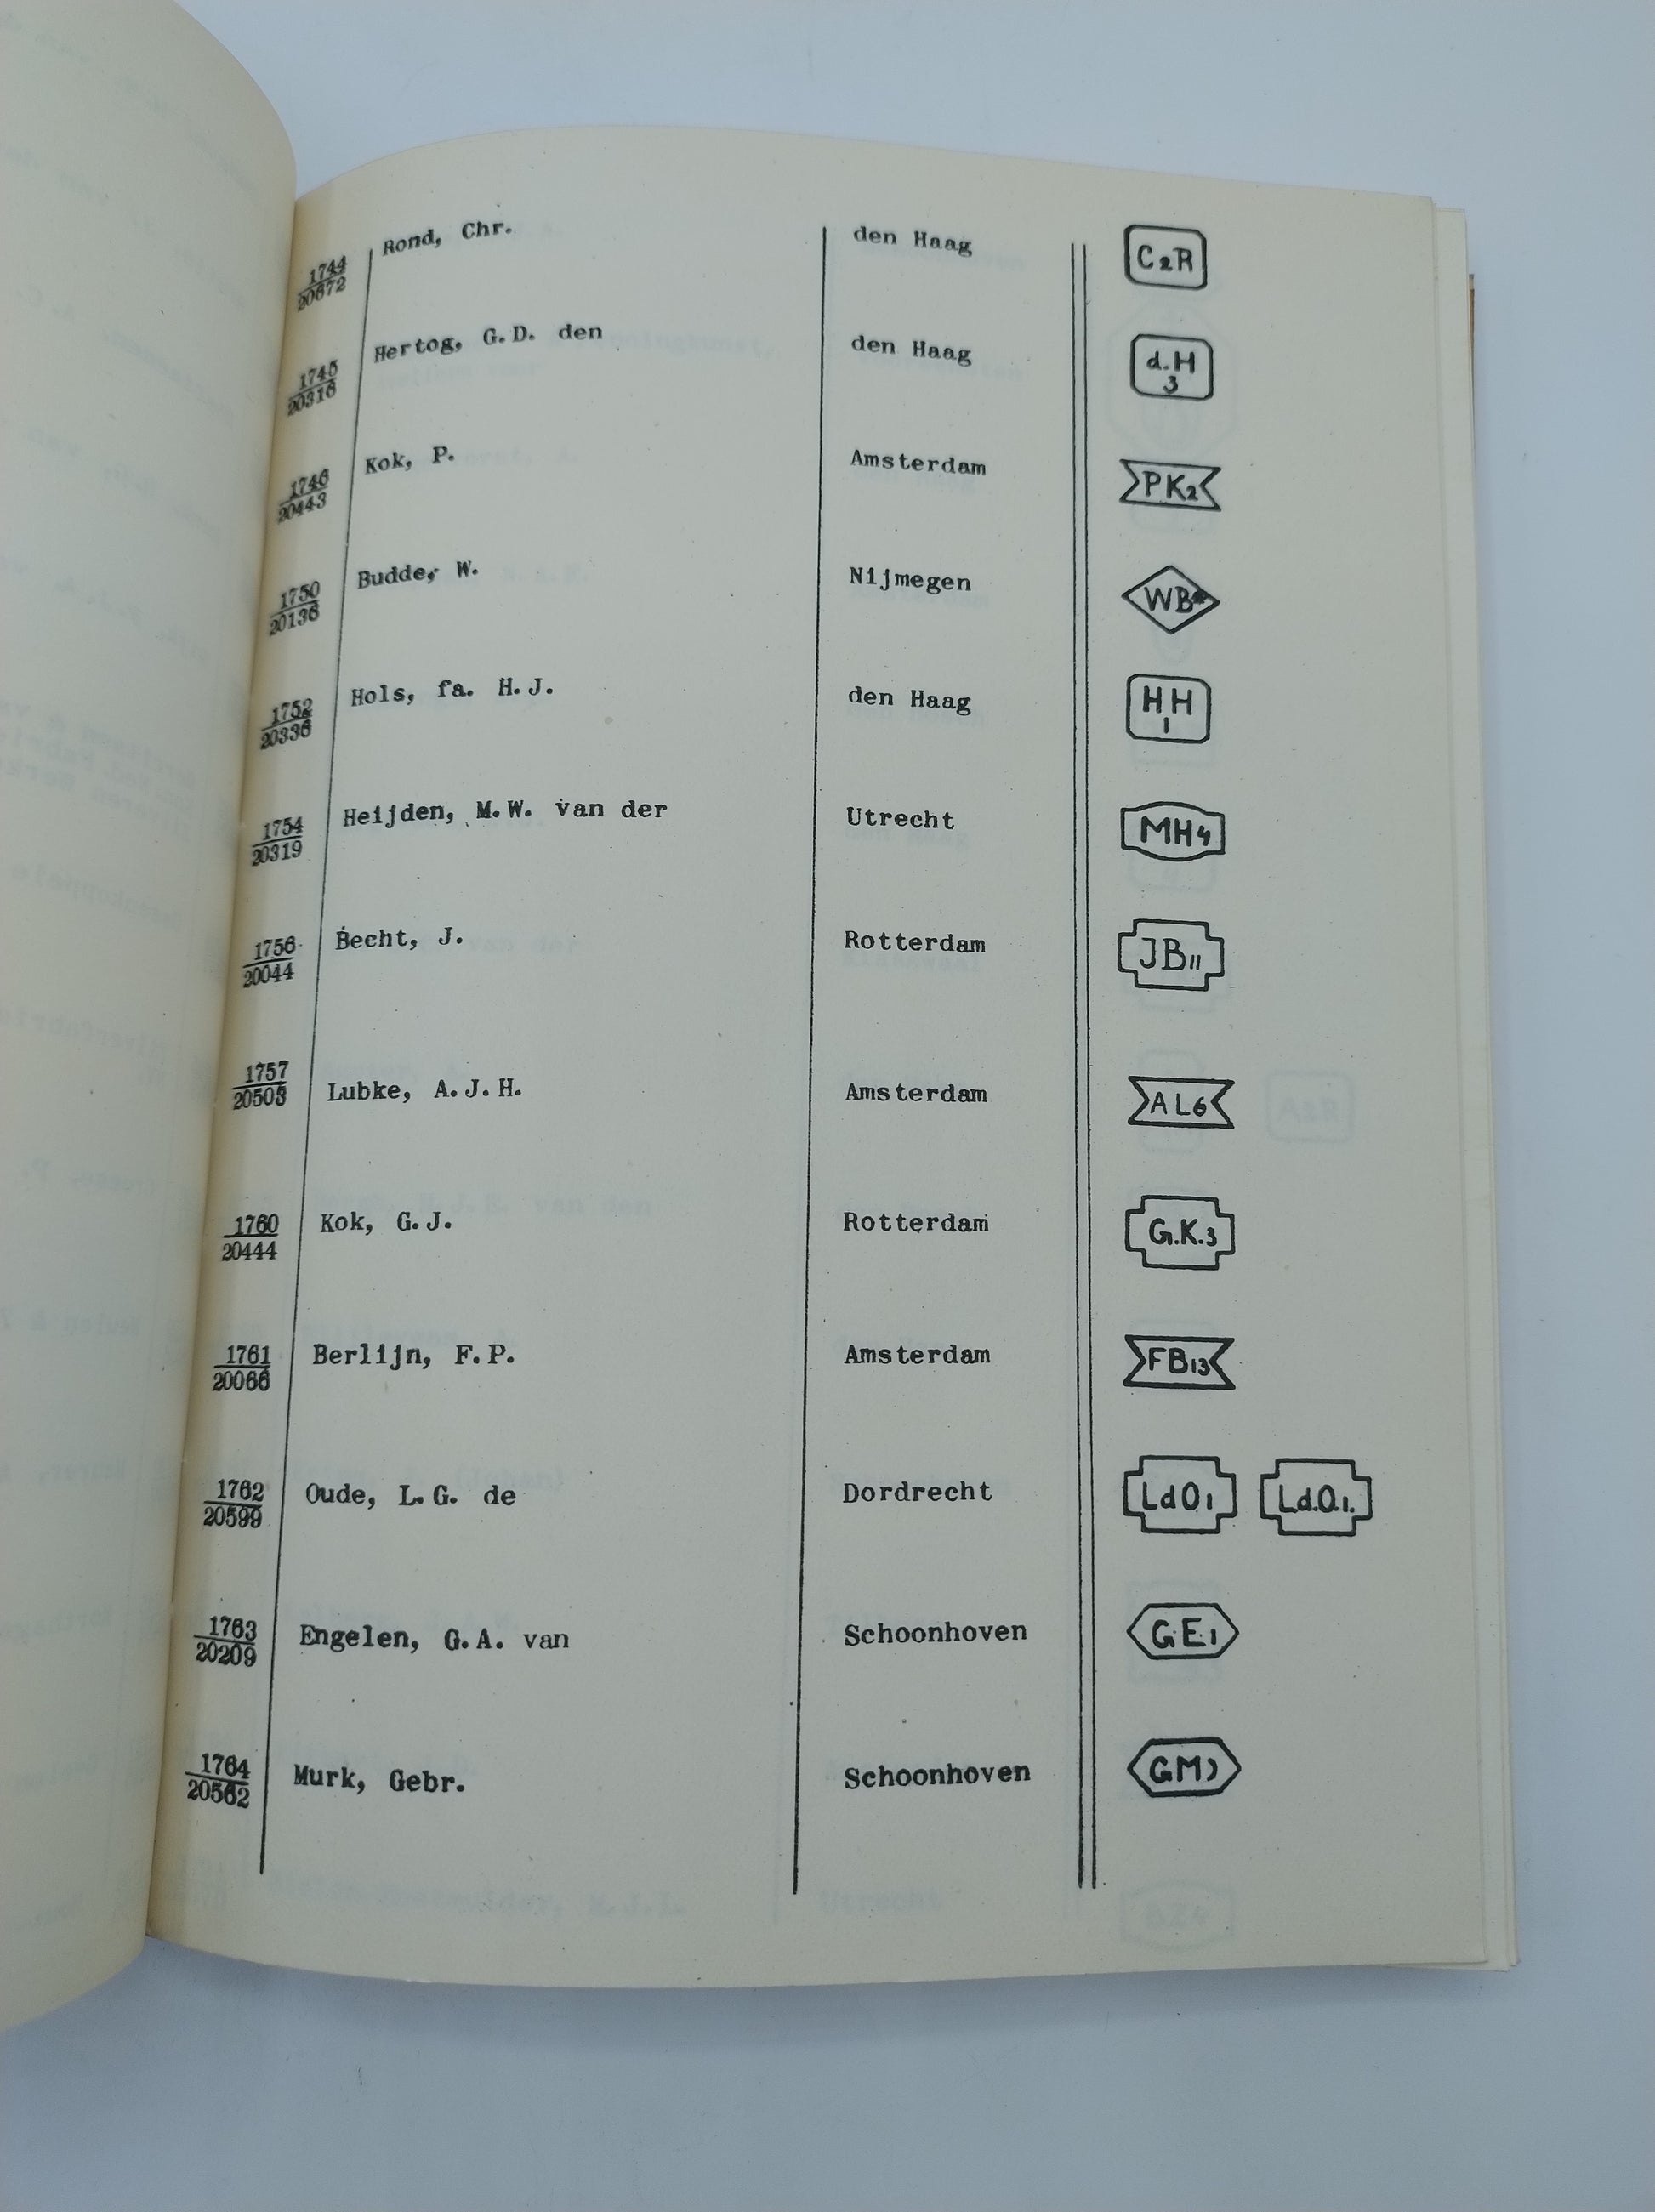 1744
20672
Rond, Chr.
den Haag
C2R
1745
20316
Hertog, G.D. den
den Haag
d.H
3
1746
20443
Kok, P.
Amsterdam
PK2
1750
20136
Budde, W.
Nijmegen
WB
1752
20336
Hols, fa. H.J.
den Haag
HH
1
1754
20319
Heijden, M.W. van der
Utrecht
MH4
1756
20044
Becht, J.
Rotterdam
JB11
1757
20505
Lubke, A.J.H.
Amsterdam
AL6
1760
20444
Kok, G.J.
Rotterdam
G.K.3
1761
20066
Berlijn, F.P.
Amsterdam
FB13
1762
20599
Oude, L.G. de
Dordrecht
LdO1 Ld.O.1.
1763
20209
Engelen, G.A. van
Schoonhoven
G.E.1
1764
20562
Murk, Gebr.
Schoonhoven
GM